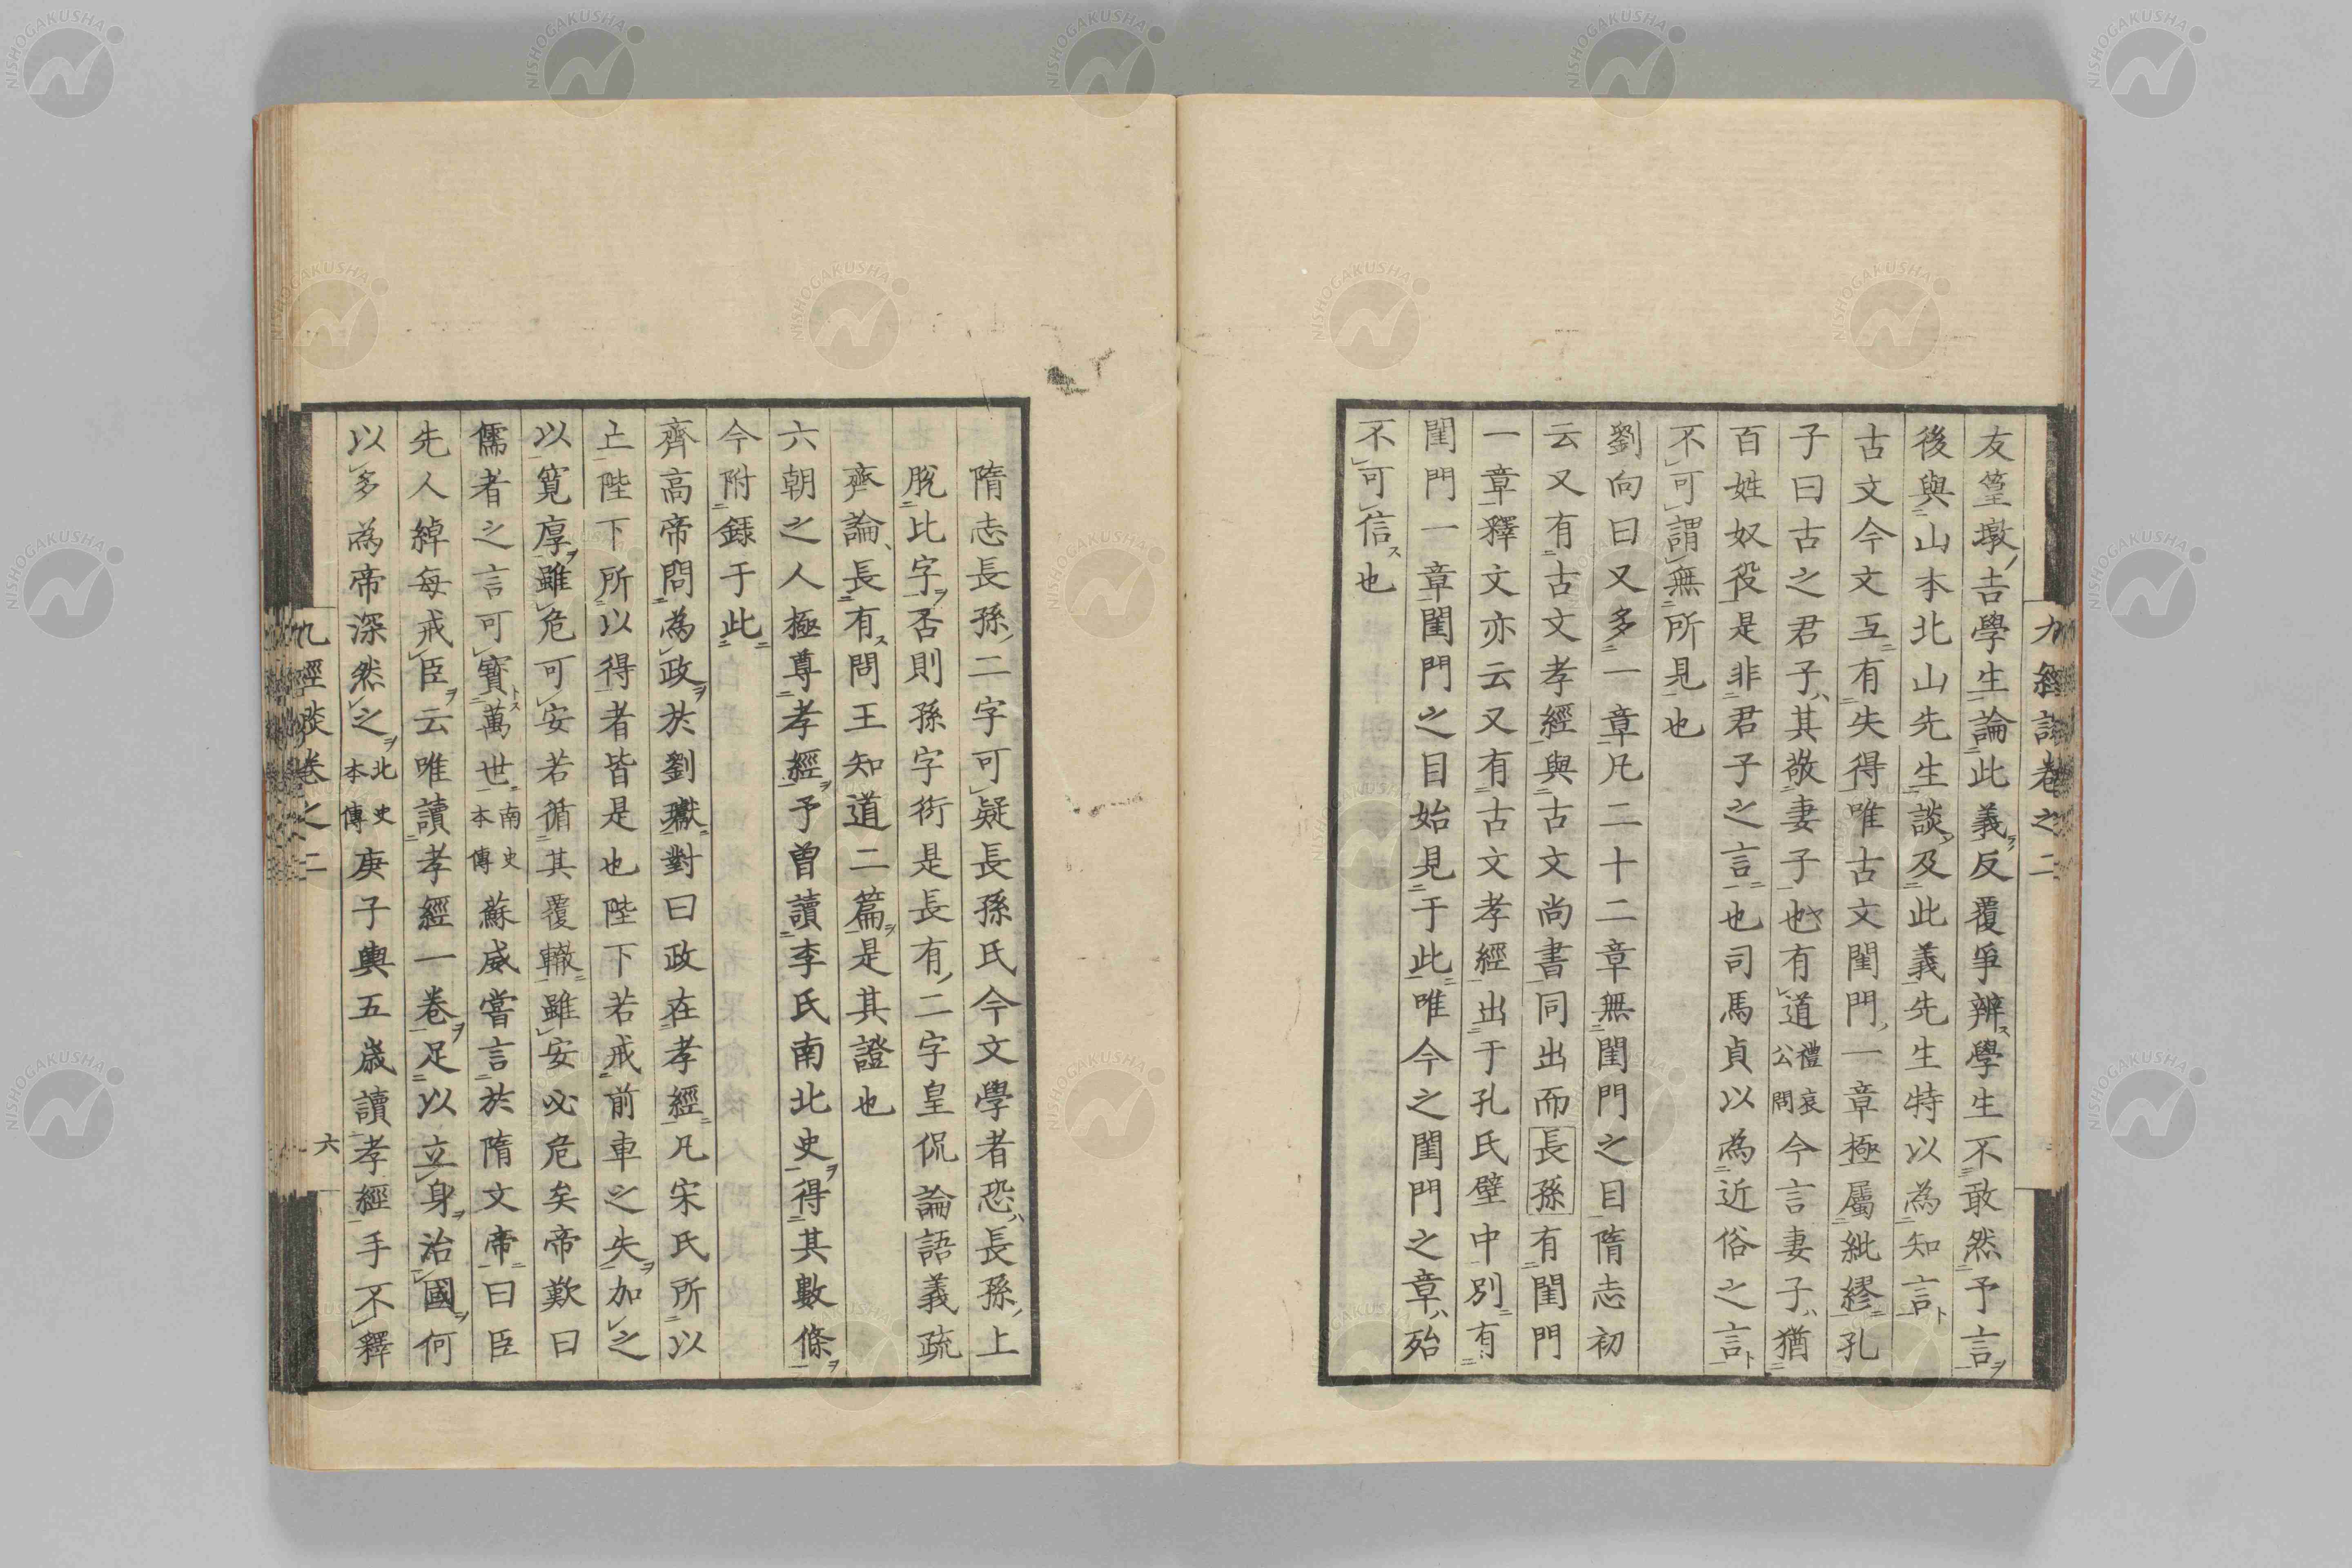 九經談卷之二
友篁墩吉學生論此義反覆爭辨學生不敢然予言
後與山本北山先生談及此義先生特以為知言
古文今文互有失得唯古文閨門一章極屬紕繆孔
子曰古之君子其敬妻子也有道禮哀公問今言妻子猶
百姓奴役是非君子之言也司馬貞以為近俗之言
不可謂無所見也
劉向曰又多一章凡二十二章無閨門之目隋志初
云又有古文孝經與古文尚書同出而長孫有閨門
一章釋文亦云又有古文孝經出于孔氏壁中別有
閨門一章閨門之目始見于此唯今之閨門之章殆
不可信也
隋志長孫二字可疑長孫氏今文學者恐長孫上
脫比字否則孫字衍是長有二字皇侃論語義疏
齊論長有問王知道二篇是其證也
六朝之人極尊孝經予曾讀李氏南北史得其數條
今附錄于此
齊高帝問為政於劉瓛對曰政在孝經凡宋氏所以
亡陛下所以得者皆是也陛下若戒前車之失加之
以寬厚雖危可安若循其覆轍雖安必危矣帝歎曰
儒者之言可寶萬世南史本傳蘇威嘗言於隋文帝曰臣
先人綽每戒臣云唯讀孝經一卷足以立身治國何
以多為帝深然之北史本傳庾子輿五歲讀孝經手不釋
九經談卷之二
六
NISHOGAKUSHA